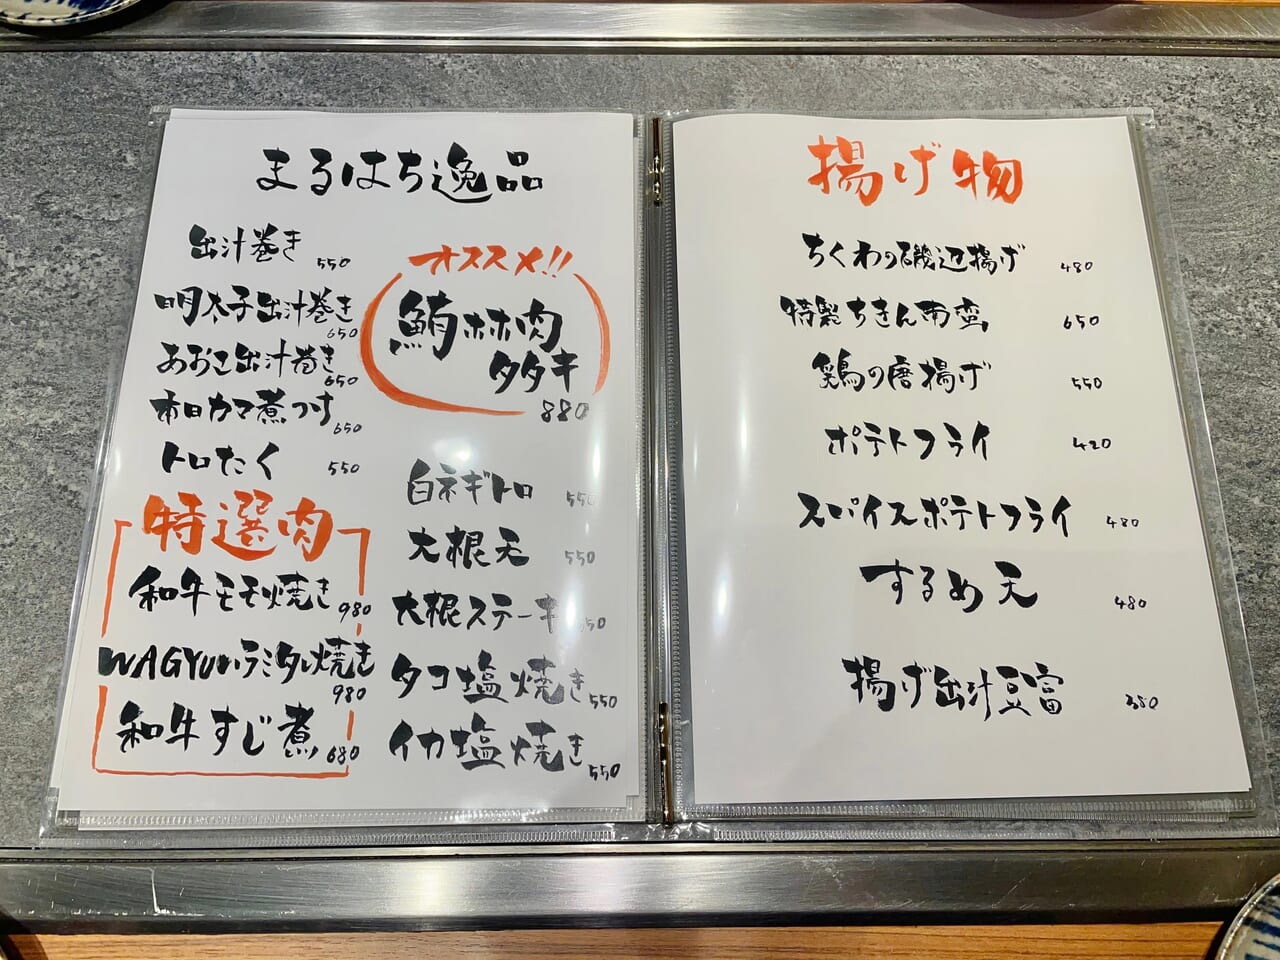 まるはち逸品
出汁巻き 550
明太子出汁巻き 650
あおさ出汁巻き 650
本日カマ煮つけ 650
トロたく 550
特選肉
和牛モモ焼き 980
WAGYUハラミタレ焼き 980
和牛すじ煮 680
オススメ!!
鮪ホホ肉
タタキ
880
白ネギトロ 550
大根天 550
大根ステーキ 550
タコ塩焼き 550
イカ塩焼き 550
揚げ物
ちくわの磯辺揚げ 480
特製ちきん南蛮 650
鶏の唐揚げ 550
ポテトフライ 420
スパイスポテトフライ 480
するめ天 480
揚げ出汁豆富